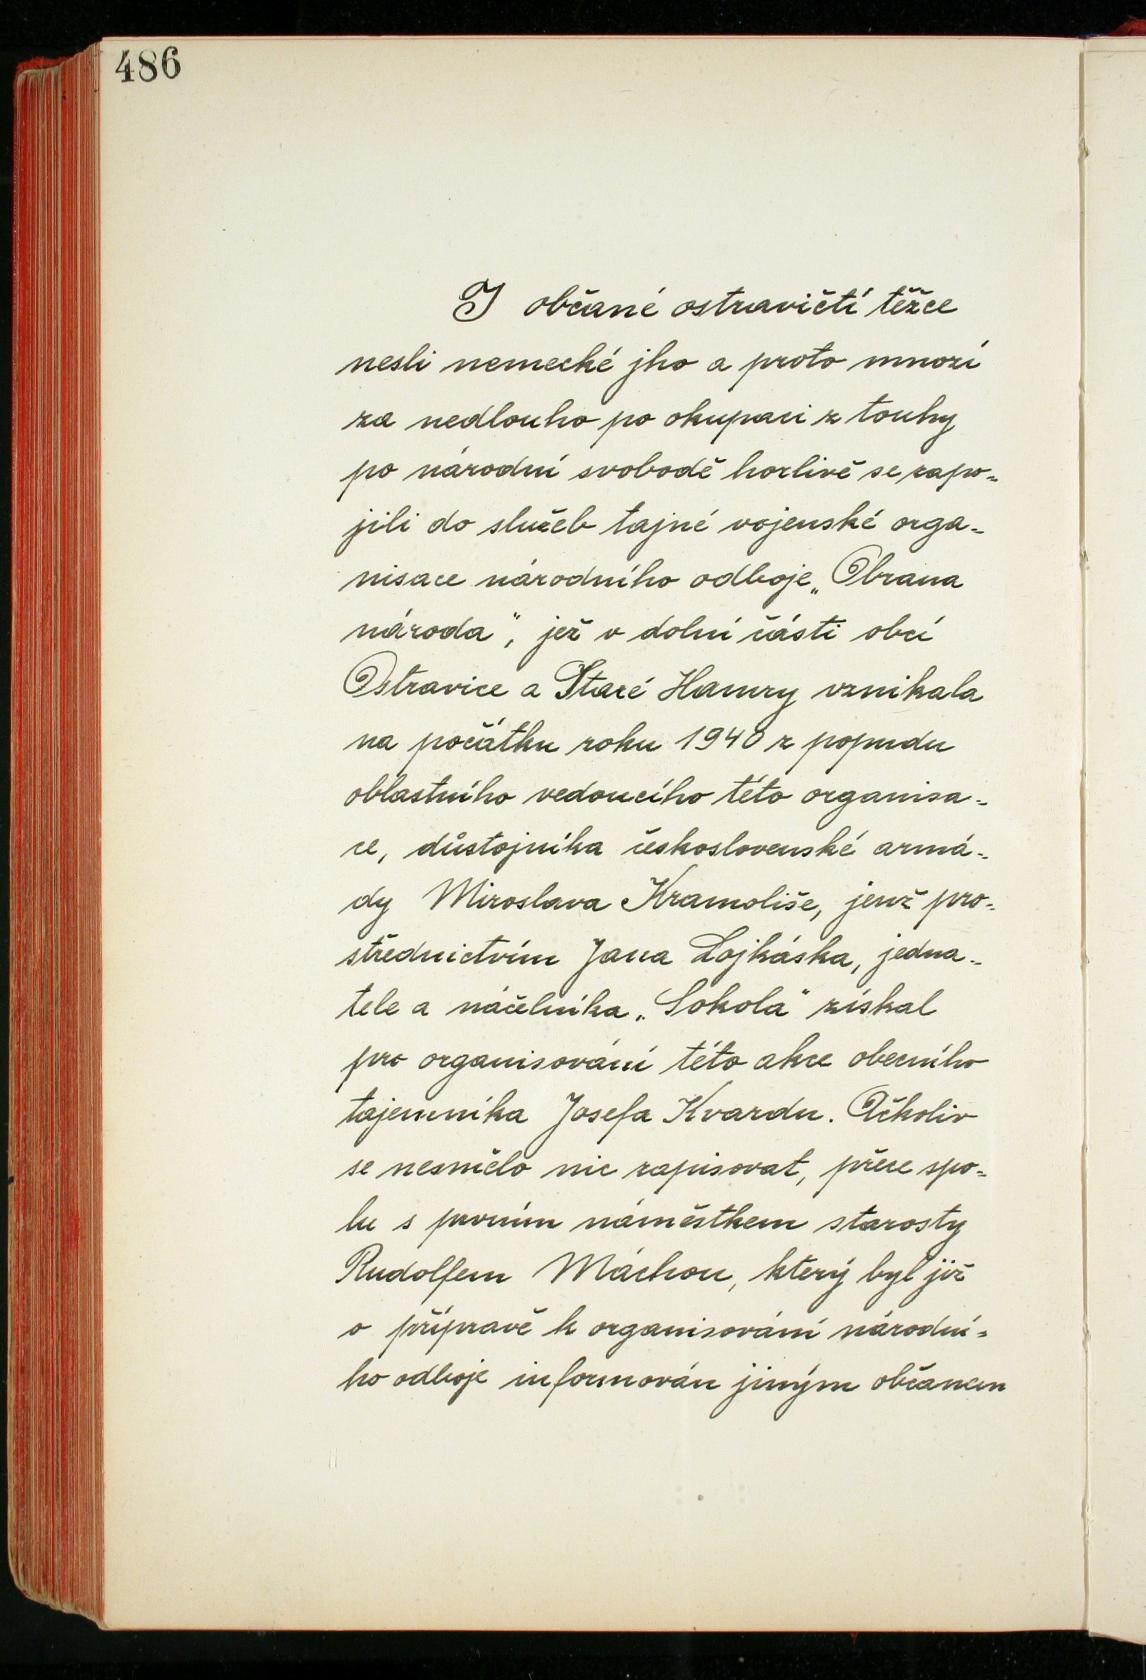 486
I občané ostravičtí těžce
nesli nemecké jho a proto mnozí
za nedlouho po okupaci z touhy
po národní svobodě horlivě se zapo-
jili do služeb tajné vojenské orga-
nisace národního odboje „Obrana
národa", jež v dolní části obcí
Ostravice a Staré Hamry vznikala
na počátku roku 1940 z popudu
oblastního vedoucího této organisa-
ce, důstojníka československé armá-
dy Miroslava Kramoliše, jenž pro-
střednictvím Jana Lojkáska, jedna-
tele a náčelníka „Sokola" získal
pro organisování této akce obecního
tajemníka Josefa Kvardu. Ačkoliv
se nesmělo nic zapisovat, přece spo-
lu s prvním náměstkem starosty
Rudolfem Máchou, který byl již
o přípravě k organisování národní-
ho odboje informován jiným občanem